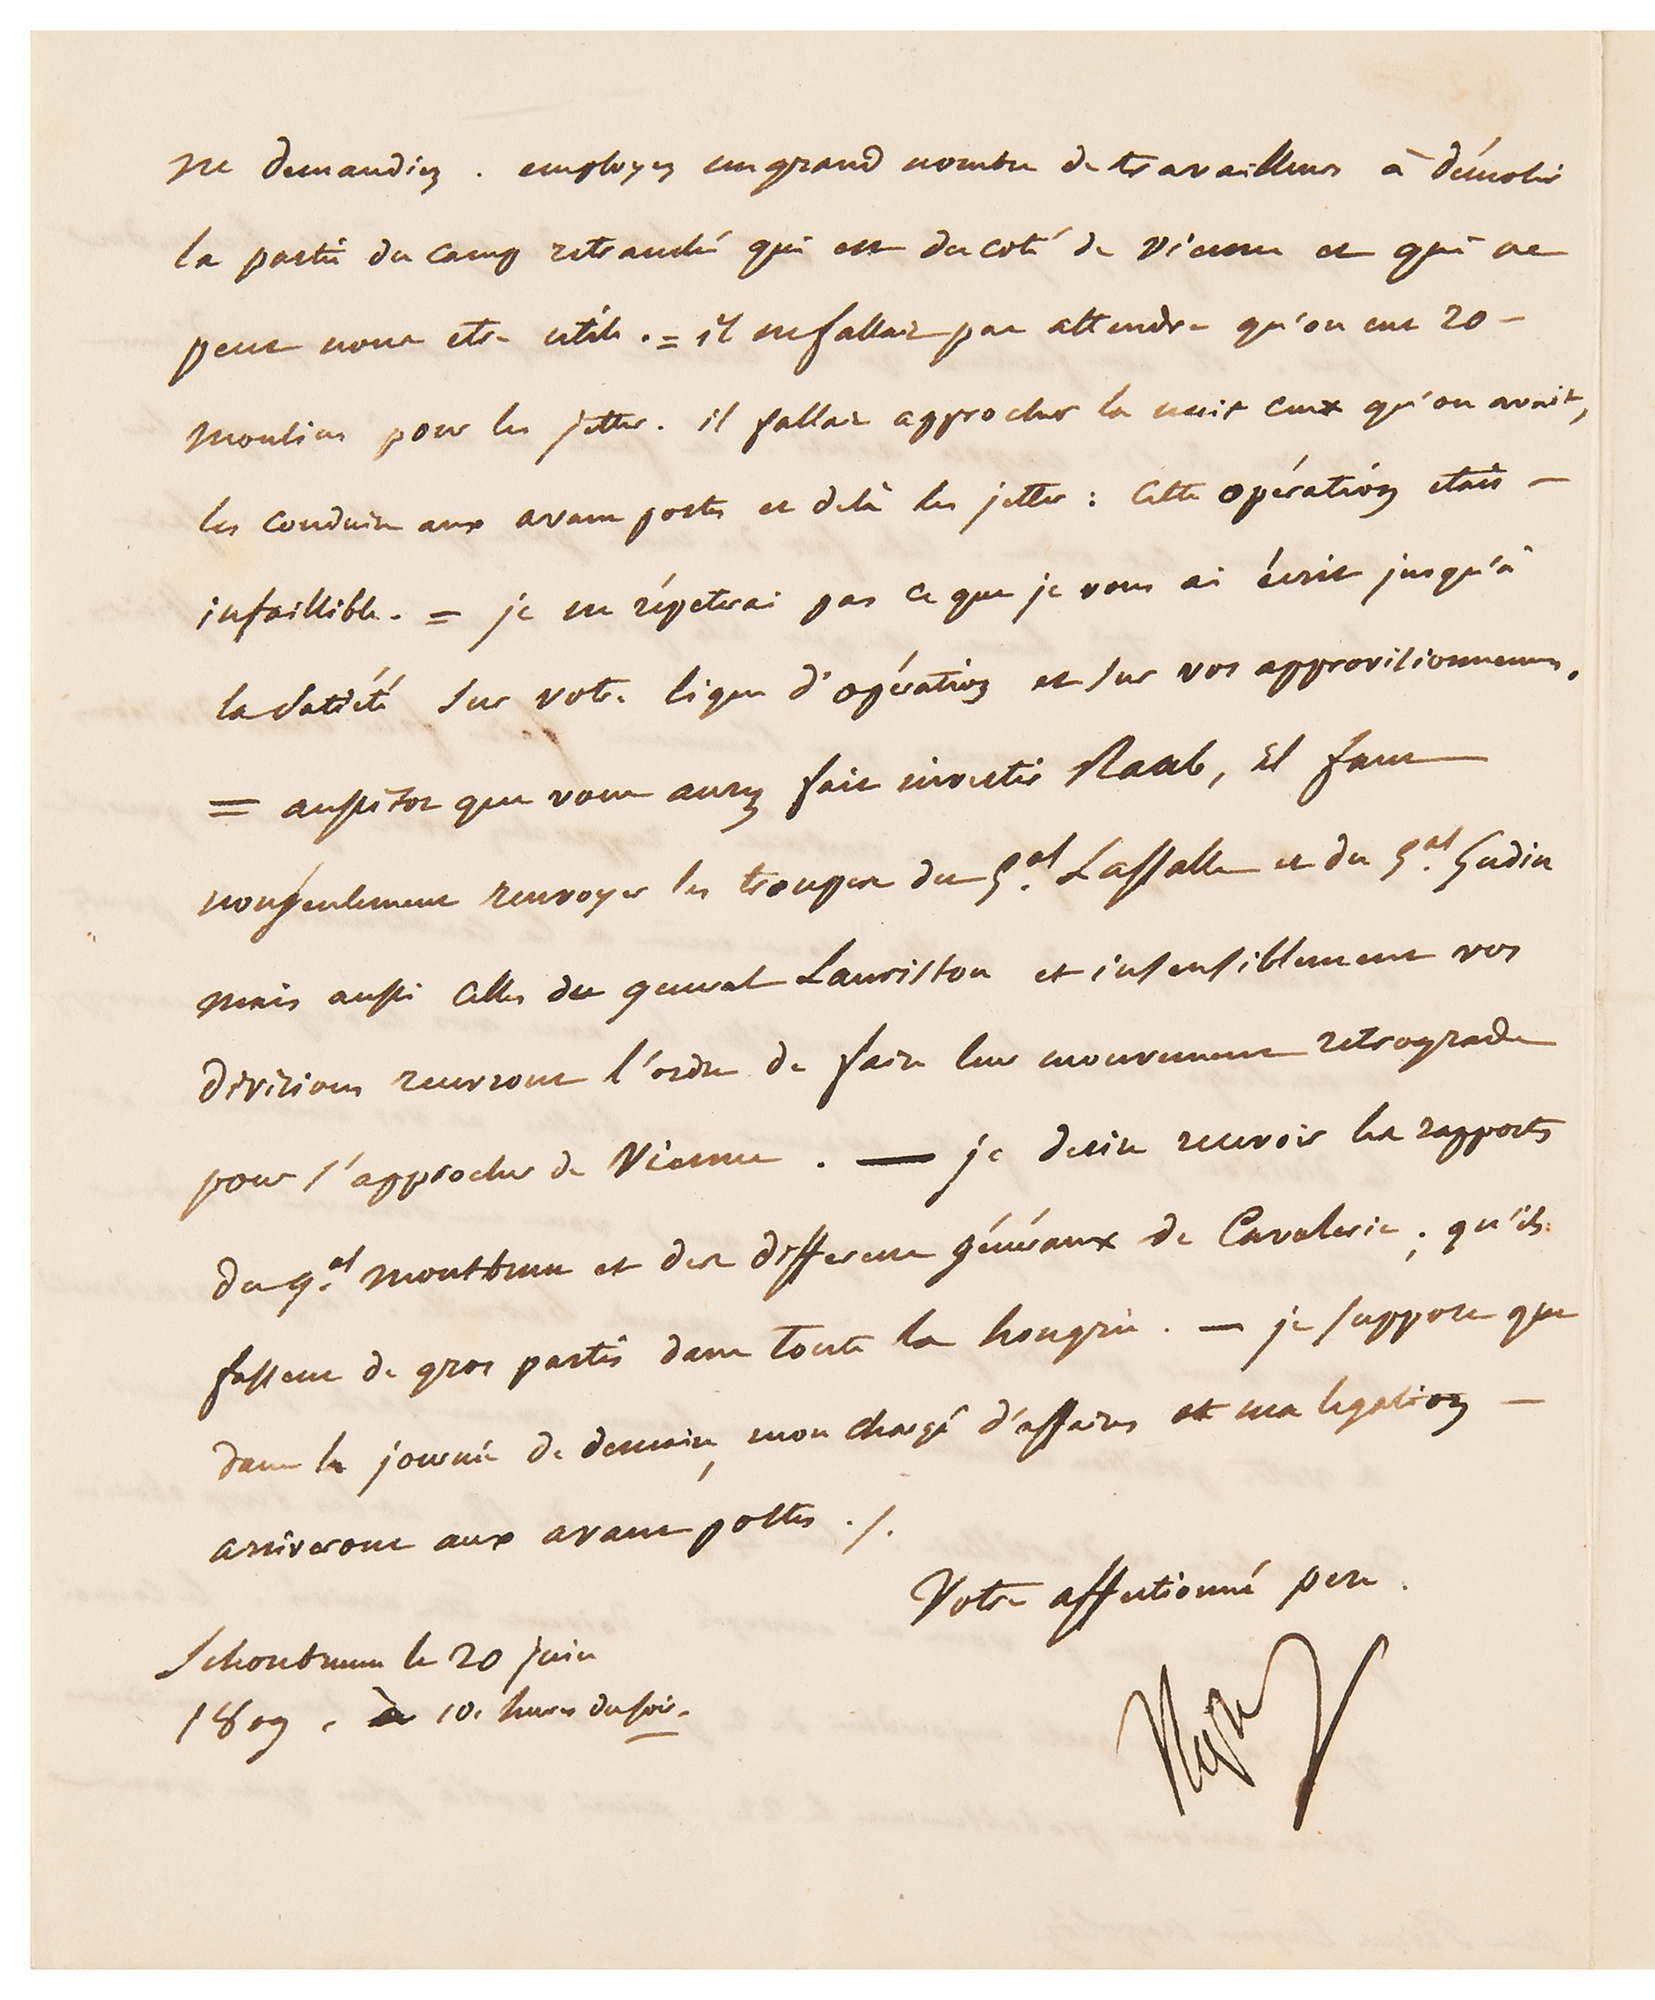 ne demandiez. employez un grand nombre de travailleurs à démolir
la partie du camp retranché qui est du coté de Vienne et qui ne
peut nous etre utile. = il ne fallait pas attendre qu'on eut 20 –
moulins pour les jetter. il fallait approcher la nuit ceux qu'on avait,
les conduire aux avant postes et delà les jetter : cette opération etait –
infaillible. = je ne répeterai pas ce que je vous ai écrit jusqu'à
la satiété sur votre ligne d'opération et sur vos approvisionnemens.
= aussitot que vous aurez fait investir Raab, il faut
non seulement renvoyer les troupes du G.al Lassalle et du G.al Gudin
mais aussi celles du general Lauriston et insensiblement vos
divisions recevront l'ordre de faire leur mouvement retrograde
pour s'approcher de Vienne. — je desire recevoir les rapports
du g.al montbrun et des differens généraux de Cavalerie; qu'ils
fassent de gros partis dans toute la hongrie. — je suppose que
dans la journée de demain, mon chargé d'affaires et ma legation –
arriveront aux avant postes ./.
Votre affectionné pere.
Schonbrunn le 20 juin
1809. à 10. heures du soir.